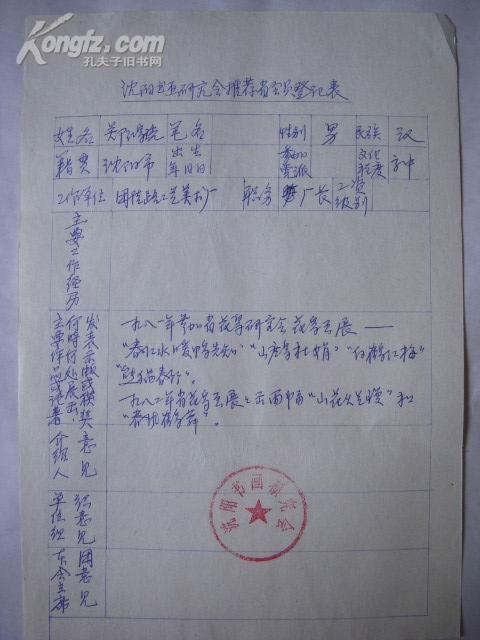 Kongfz.com
孔夫子旧书网
沈阳书画研究会推荐省会员登记表
姓名 吴阳 笔名 性别 男 民族 汉
籍贯 沈阳市 出生年月日 参加党派 文化程度 高中
工作单位 团结路工艺美术厂 职务 厂长 工资级别
主要工作经历
主要作品或论著何时何处展出发表示教或获奖
一九八一年参加省花鸟研究会花鸟画展——
"春江水暖鸭先知" "山 杜娟" "白鹤红梅"
"熊猫春竹"。
一九八二年省花鸟画展上 "山花烂漫" 和
"春 鹤舞"。
介绍人意见
单位组织意见
东会主席团意见
沈阳书画研究会